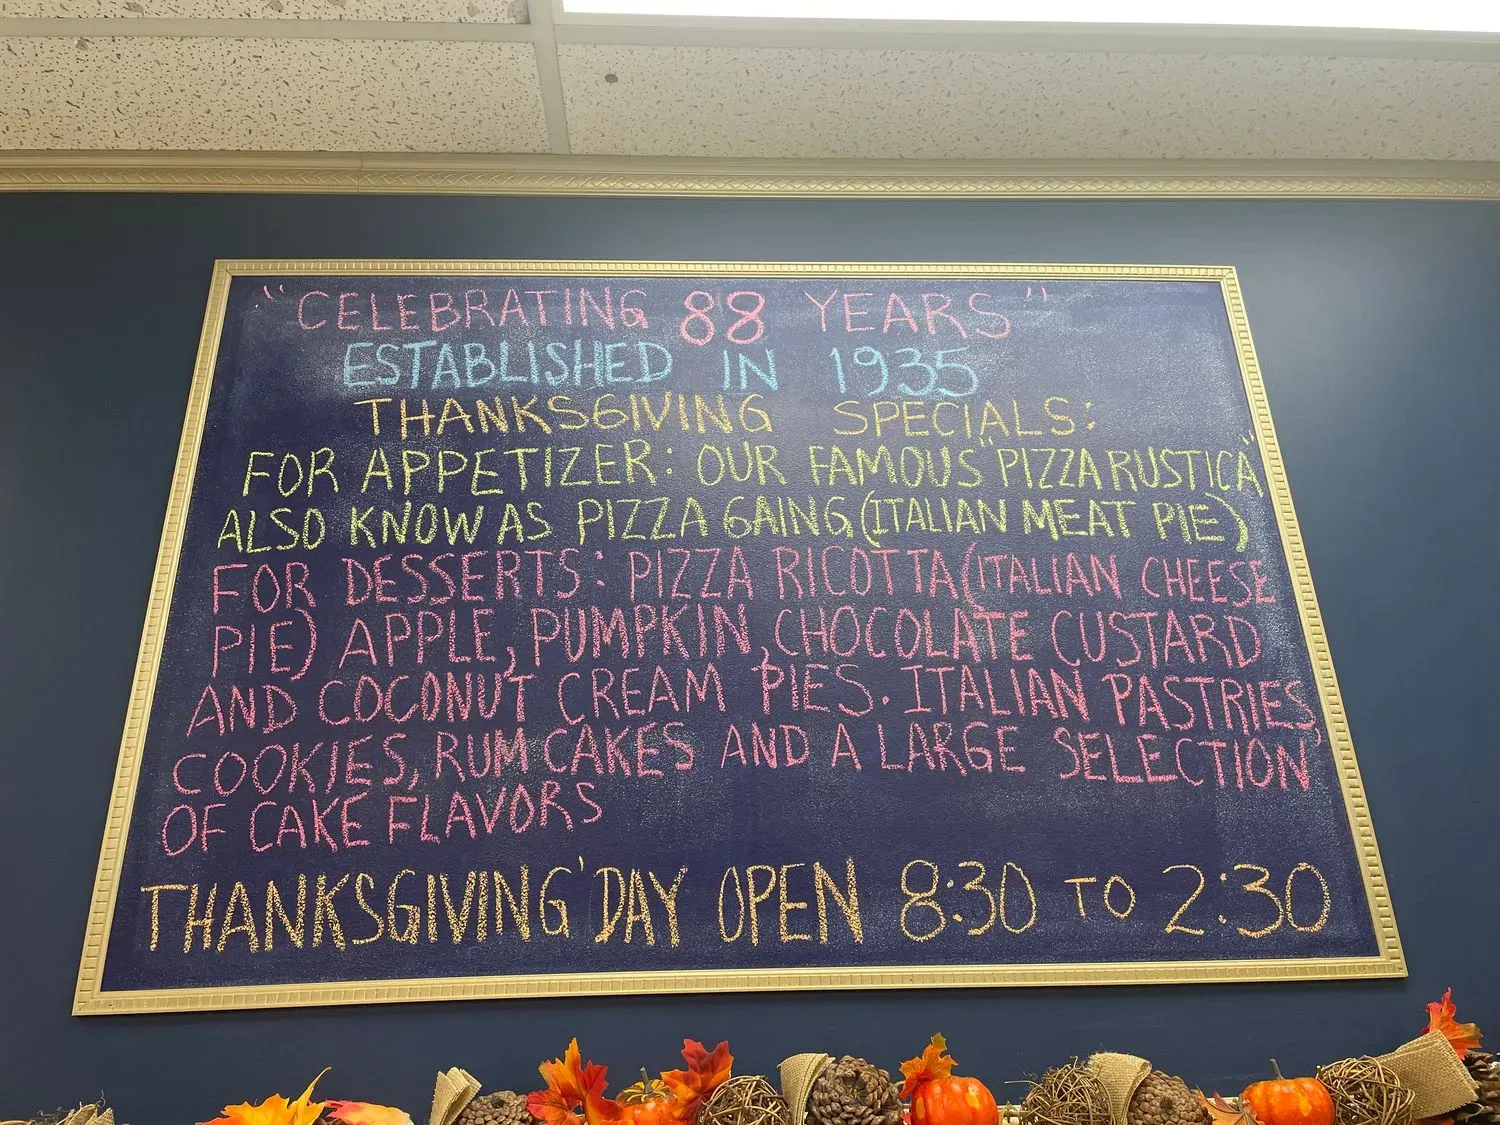 "CELEBRATING 88 YEARS"
ESTABLISHED IN 1935
THANKSGIVING SPECIALS:
FOR APPETIZER: OUR FAMOUS "PIZZA RUSTICA"
ALSO KNOW AS PIZZA GAING (ITALIAN MEAT PIE)
FOR DESSERTS: PIZZA RICOTTA (ITALIAN CHEESE
PIE) APPLE, PUMPKIN, CHOCOLATE CUSTARD
AND COCONUT CREAM PIES. ITALIAN PASTRIES,
COOKIES, RUM CAKES AND A LARGE SELECTION
OF CAKE FLAVORS
THANKSGIVING' DAY OPEN 8:30 TO 2:30